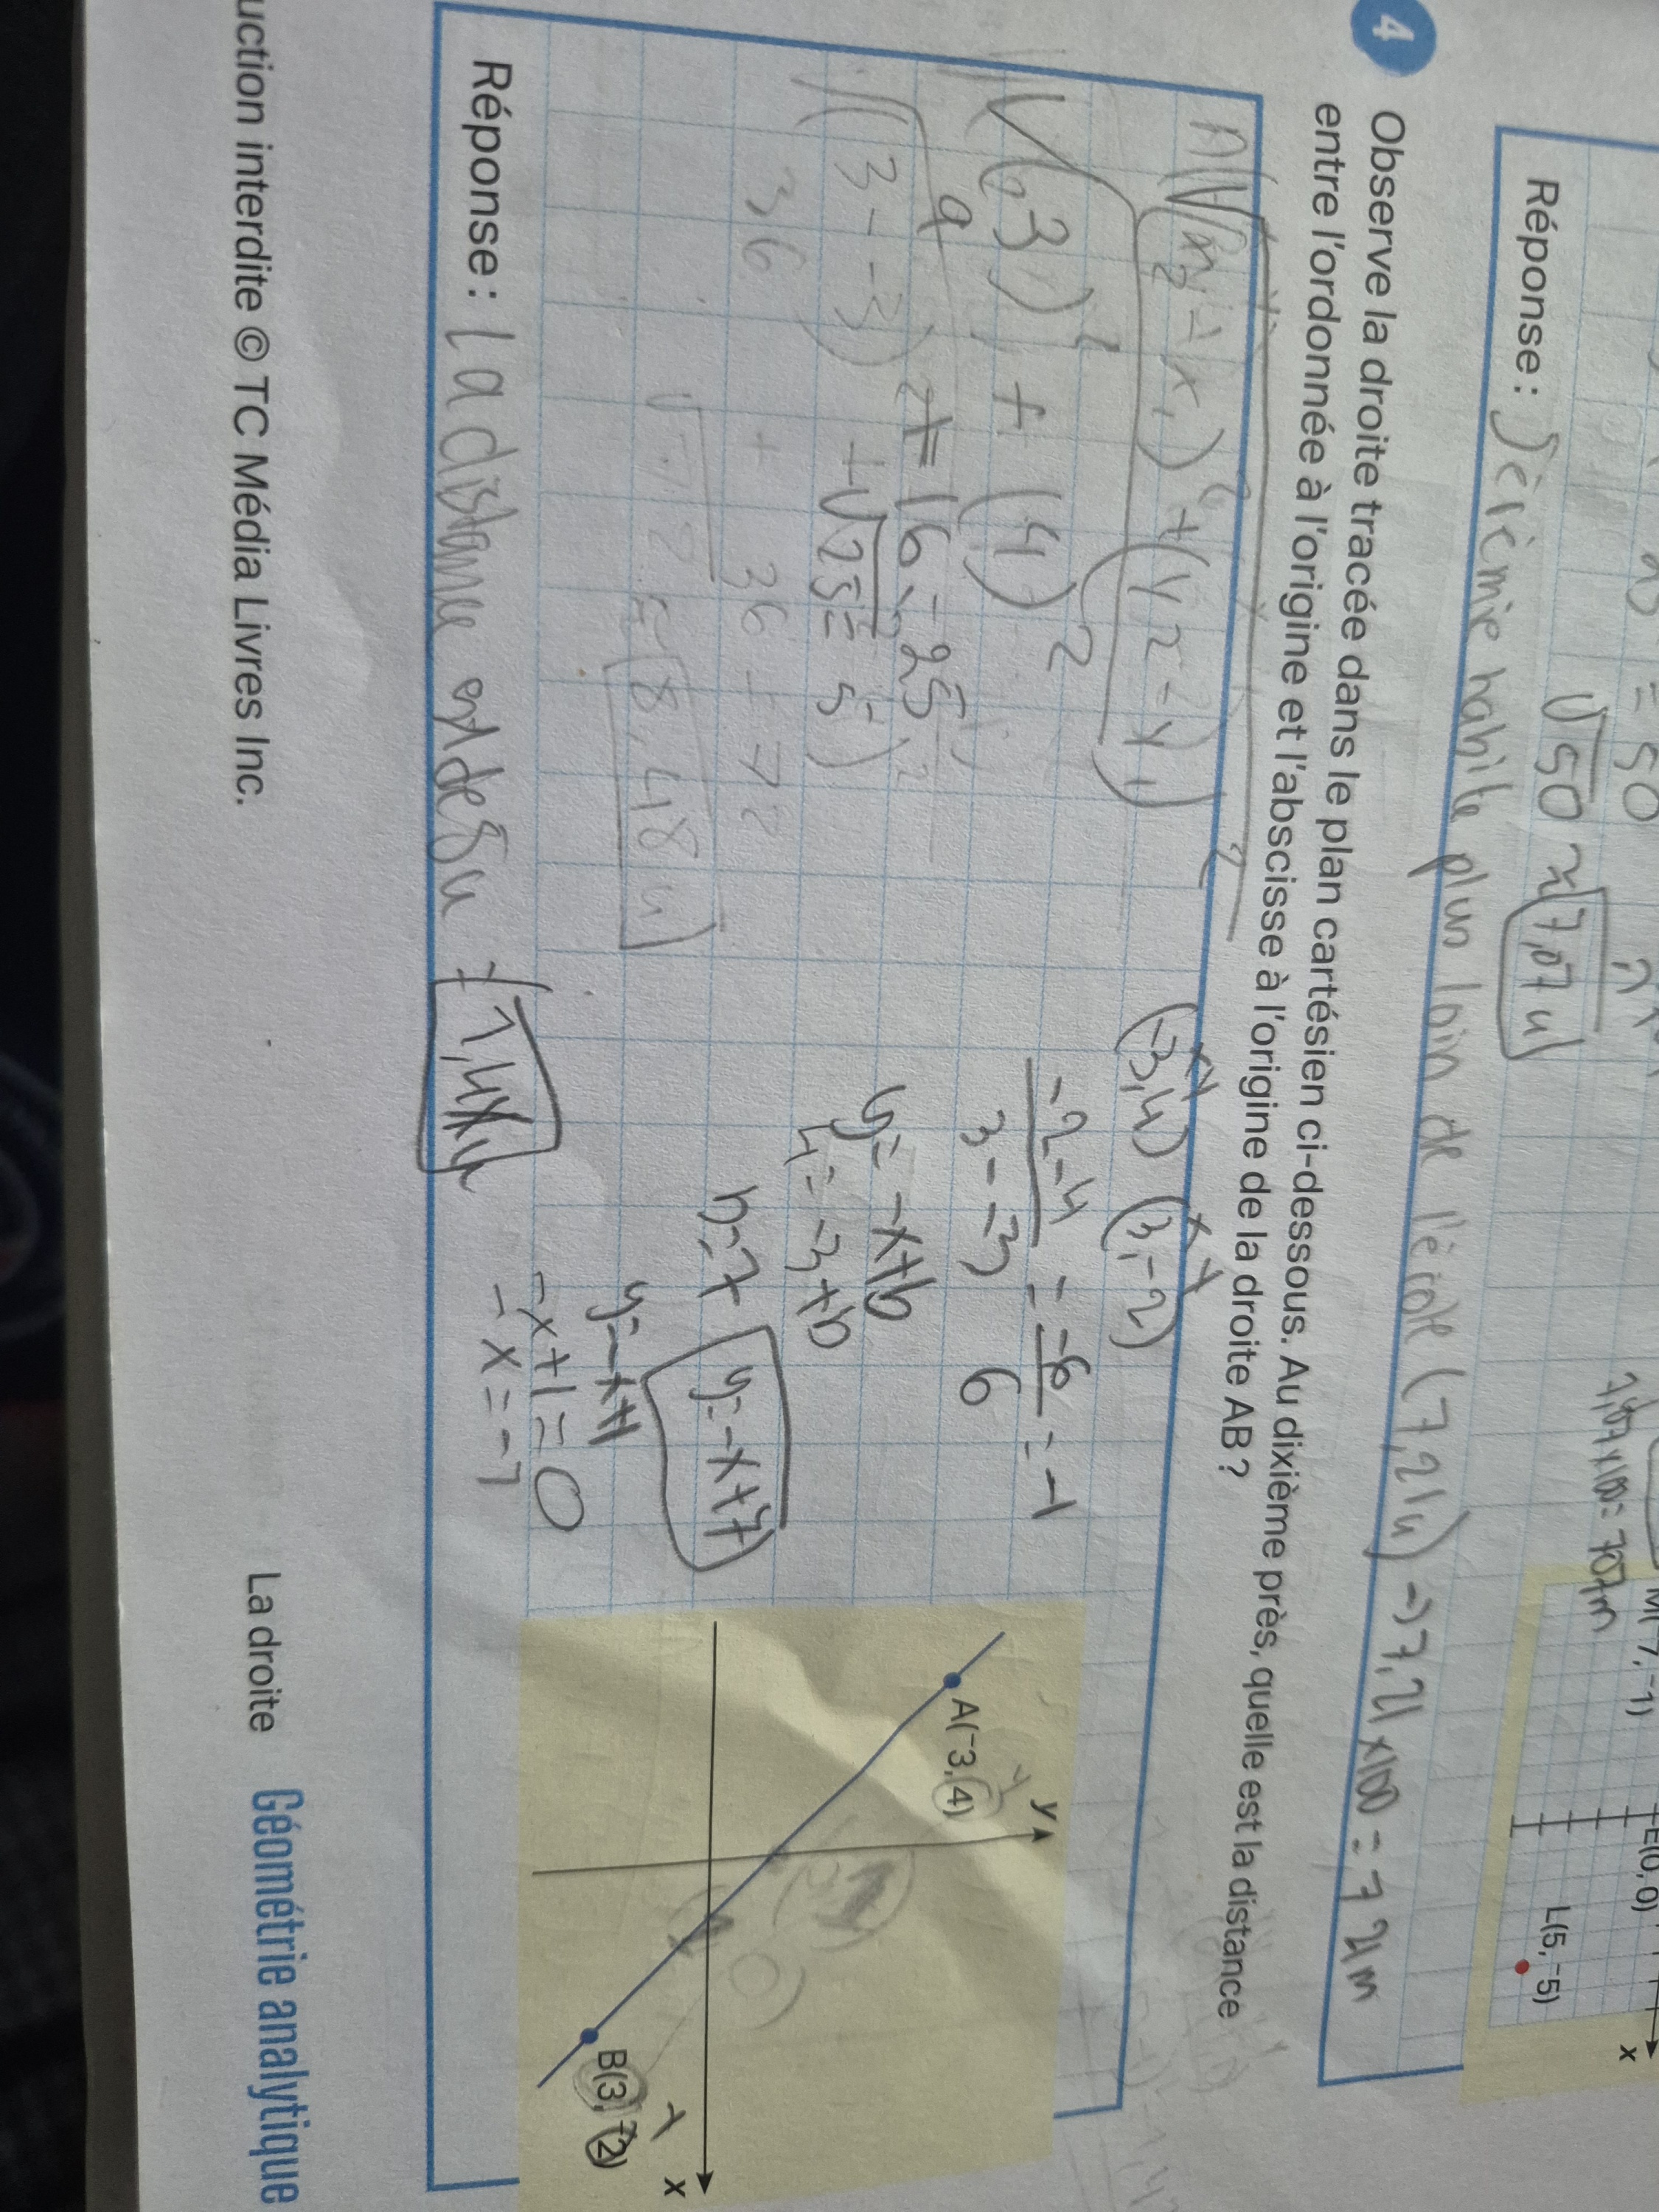 = 50
√50 ≈ 7,07 u
7,07 × 100 = 707 m
M(⁻7, ⁻1)
E(0, 0)
L(5, ⁻5)
x
Réponse : Jérémie habite plus loin de l'école (7,21u) → 7,21 × 100 = 721m
4 Observe la droite tracée dans le plan cartésien ci-dessous. Au dixième près, quelle est la distance
entre l'ordonnée à l'origine et l'abscisse à l'origine de la droite AB ?
(x₂ - x₁)² + (y₂ - y₁)²
√(3)² + (4)²
9 + 16 = 25
√25 = 5
(3 - -3)
3,6 + 36 = 72
8,48 u
x y x y
(-3,4) (3,-2)
-2-4 = -6 = -1
3--3 6
y= -x+b
4= -3+b
b=7
y=-x+7
y=-x+1
-x+1=0
-x=-1
y
A(⁻3, 4)
B(3, ⁻2)
x
Réponse : la distance est de 5u
1,4 u
uction interdite © TC Média Livres Inc.
La droite Géométrie analytique